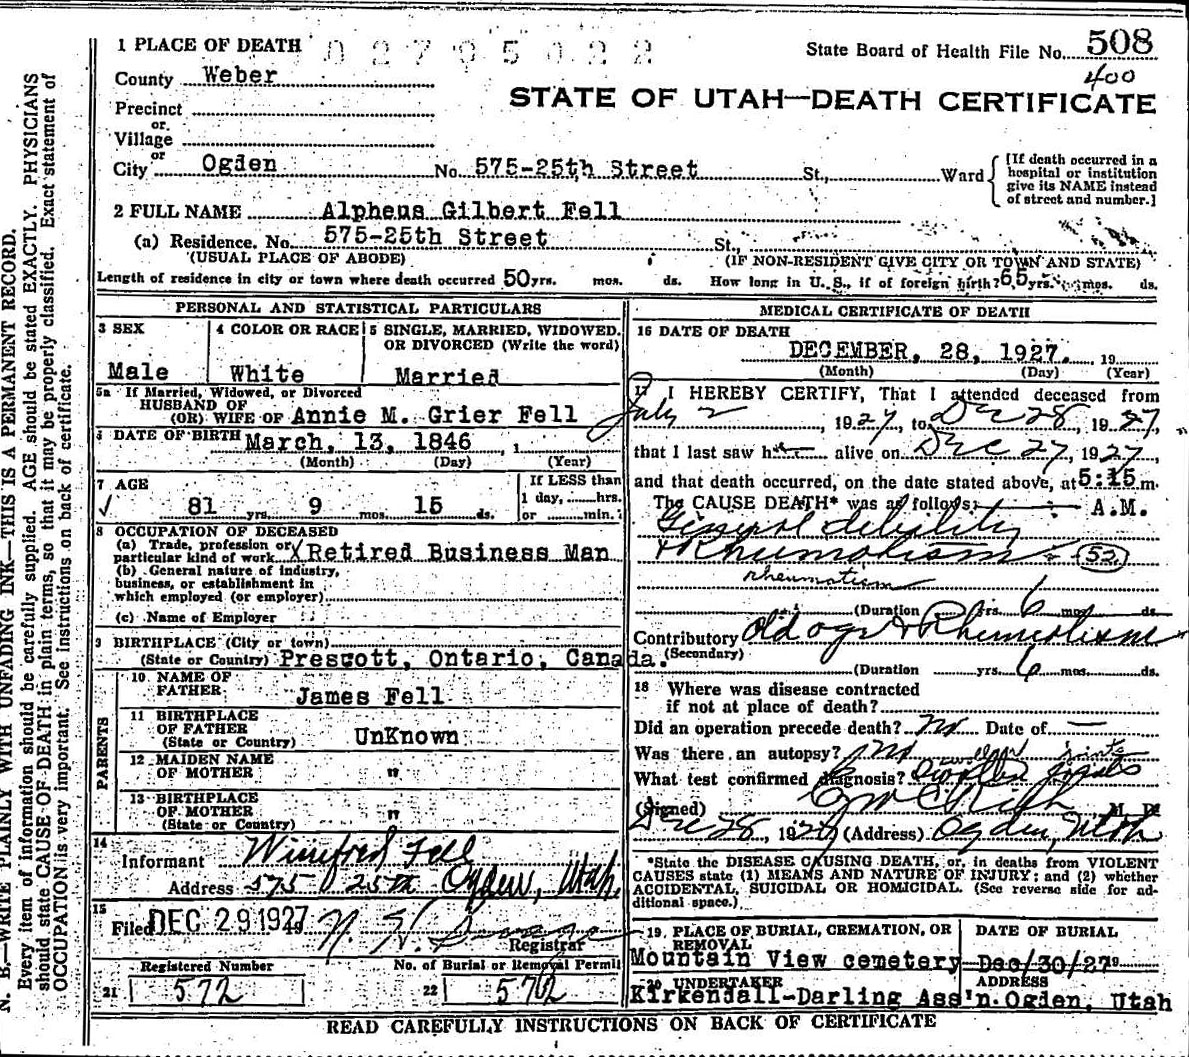 1 PLACE OF DEATH
02795022
State Board of Health File No. 508
County Weber
400
STATE OF UTAH—DEATH CERTIFICATE
Precinct
or
Village
or
City Ogden No. 575-25th Street St., Ward
[If death occurred in a
hospital or institution
give its NAME instead
of street and number.]
2 FULL NAME Alpheus Gilbert Fell
(a) Residence. No. 575-25th Street St.,
(USUAL PLACE OF ABODE) (IF NON-RESIDENT GIVE CITY OR TOWN AND STATE)
Length of residence in city or town where death occurred 50 yrs. mos. ds. How long in U. S., if of foreign birth? 65 yrs. mos. ds.
PERSONAL AND STATISTICAL PARTICULARS
3 SEX
Male
4 COLOR OR RACE
White
5 SINGLE, MARRIED, WIDOWED,
OR DIVORCED (Write the word)
Married
5a If Married, Widowed, or Divorced
HUSBAND OF
(OR) WIFE OF Annie M. Grier Fell
6 DATE OF BIRTH March, 13, 1846 , 1
(Month) (Day) (Year)
7 AGE
If LESS than
1 day, hrs.
or min.
✓ 81 yrs. 9 mos. 15 ds.
8 OCCUPATION OF DECEASED
(a) Trade, profession or
particular kind of work Retired Business Man
(b) General nature of industry,
business, or establishment in
which employed (or employer)
(c) Name of Employer
9 BIRTHPLACE (City or town)
(State or Country) Prescott, Ontario, Canada.
PARENTS
10 NAME OF
FATHER James Fell
11 BIRTHPLACE
OF FATHER
(State or Country) UnKnown
12 MAIDEN NAME
OF MOTHER "
13 BIRTHPLACE
OF MOTHER "
(State or Country)
14
Informant Winifred Fell
Address 575 25th Ogden, Utah.
15
Filed DEC 29 1927
Registrar
Registered Number
21 572
No. of Burial or Removal Permit
22 572
MEDICAL CERTIFICATE OF DEATH
16 DATE OF DEATH
DECEMBER, 28, 1927. 19
(Month) (Day) (Year)
17 I HEREBY CERTIFY, That I attended deceased from
July 2, 1927, to Dec 28, 1927,
that I last saw h alive on Dec 27, 1927,
and that death occurred, on the date stated above, at 5:15 m.
The CAUSE DEATH* was as follows: A.M.
General debility
+ Rheumatism (52)
rheumatism
(Duration yrs. 6 mos. ds.
Contributory Old age + Rhumatism
(Secondary)
(Duration yrs. 6 mos. ds.
18 Where was disease contracted
if not at place of death?
Did an operation precede death? No Date of —
Was there an autopsy? No
What test confirmed diagnosis? Swollen joints
(Signed) M. D.
Dec 28, 1927 (Address) Ogden, Utah
*State the DISEASE CAUSING DEATH, or, in deaths from VIOLENT
CAUSES state (1) MEANS AND NATURE OF INJURY; and (2) whether
ACCIDENTAL, SUICIDAL OR HOMICIDAL. (See reverse side for ad-
ditional space.)
19 PLACE OF BURIAL, CREMATION, OR
REMOVAL
Mountain View cemetery
DATE OF BURIAL
Dec/30/27
20 UNDERTAKER ADDRESS
Kirkendall-Darling Ass'n. Ogden, Utah
READ CAREFULLY INSTRUCTIONS ON BACK OF CERTIFICATE
N. B.—WRITE PLAINLY WITH UNFADING INK—THIS IS A PERMANENT RECORD.
Every item of information should be carefully supplied. AGE should be stated EXACTLY. PHYSICIANS
should state CAUSE OF DEATH in plain terms, so that it may be properly classified. Exact statement of
OCCUPATION is very important. See instructions on back of certificate.